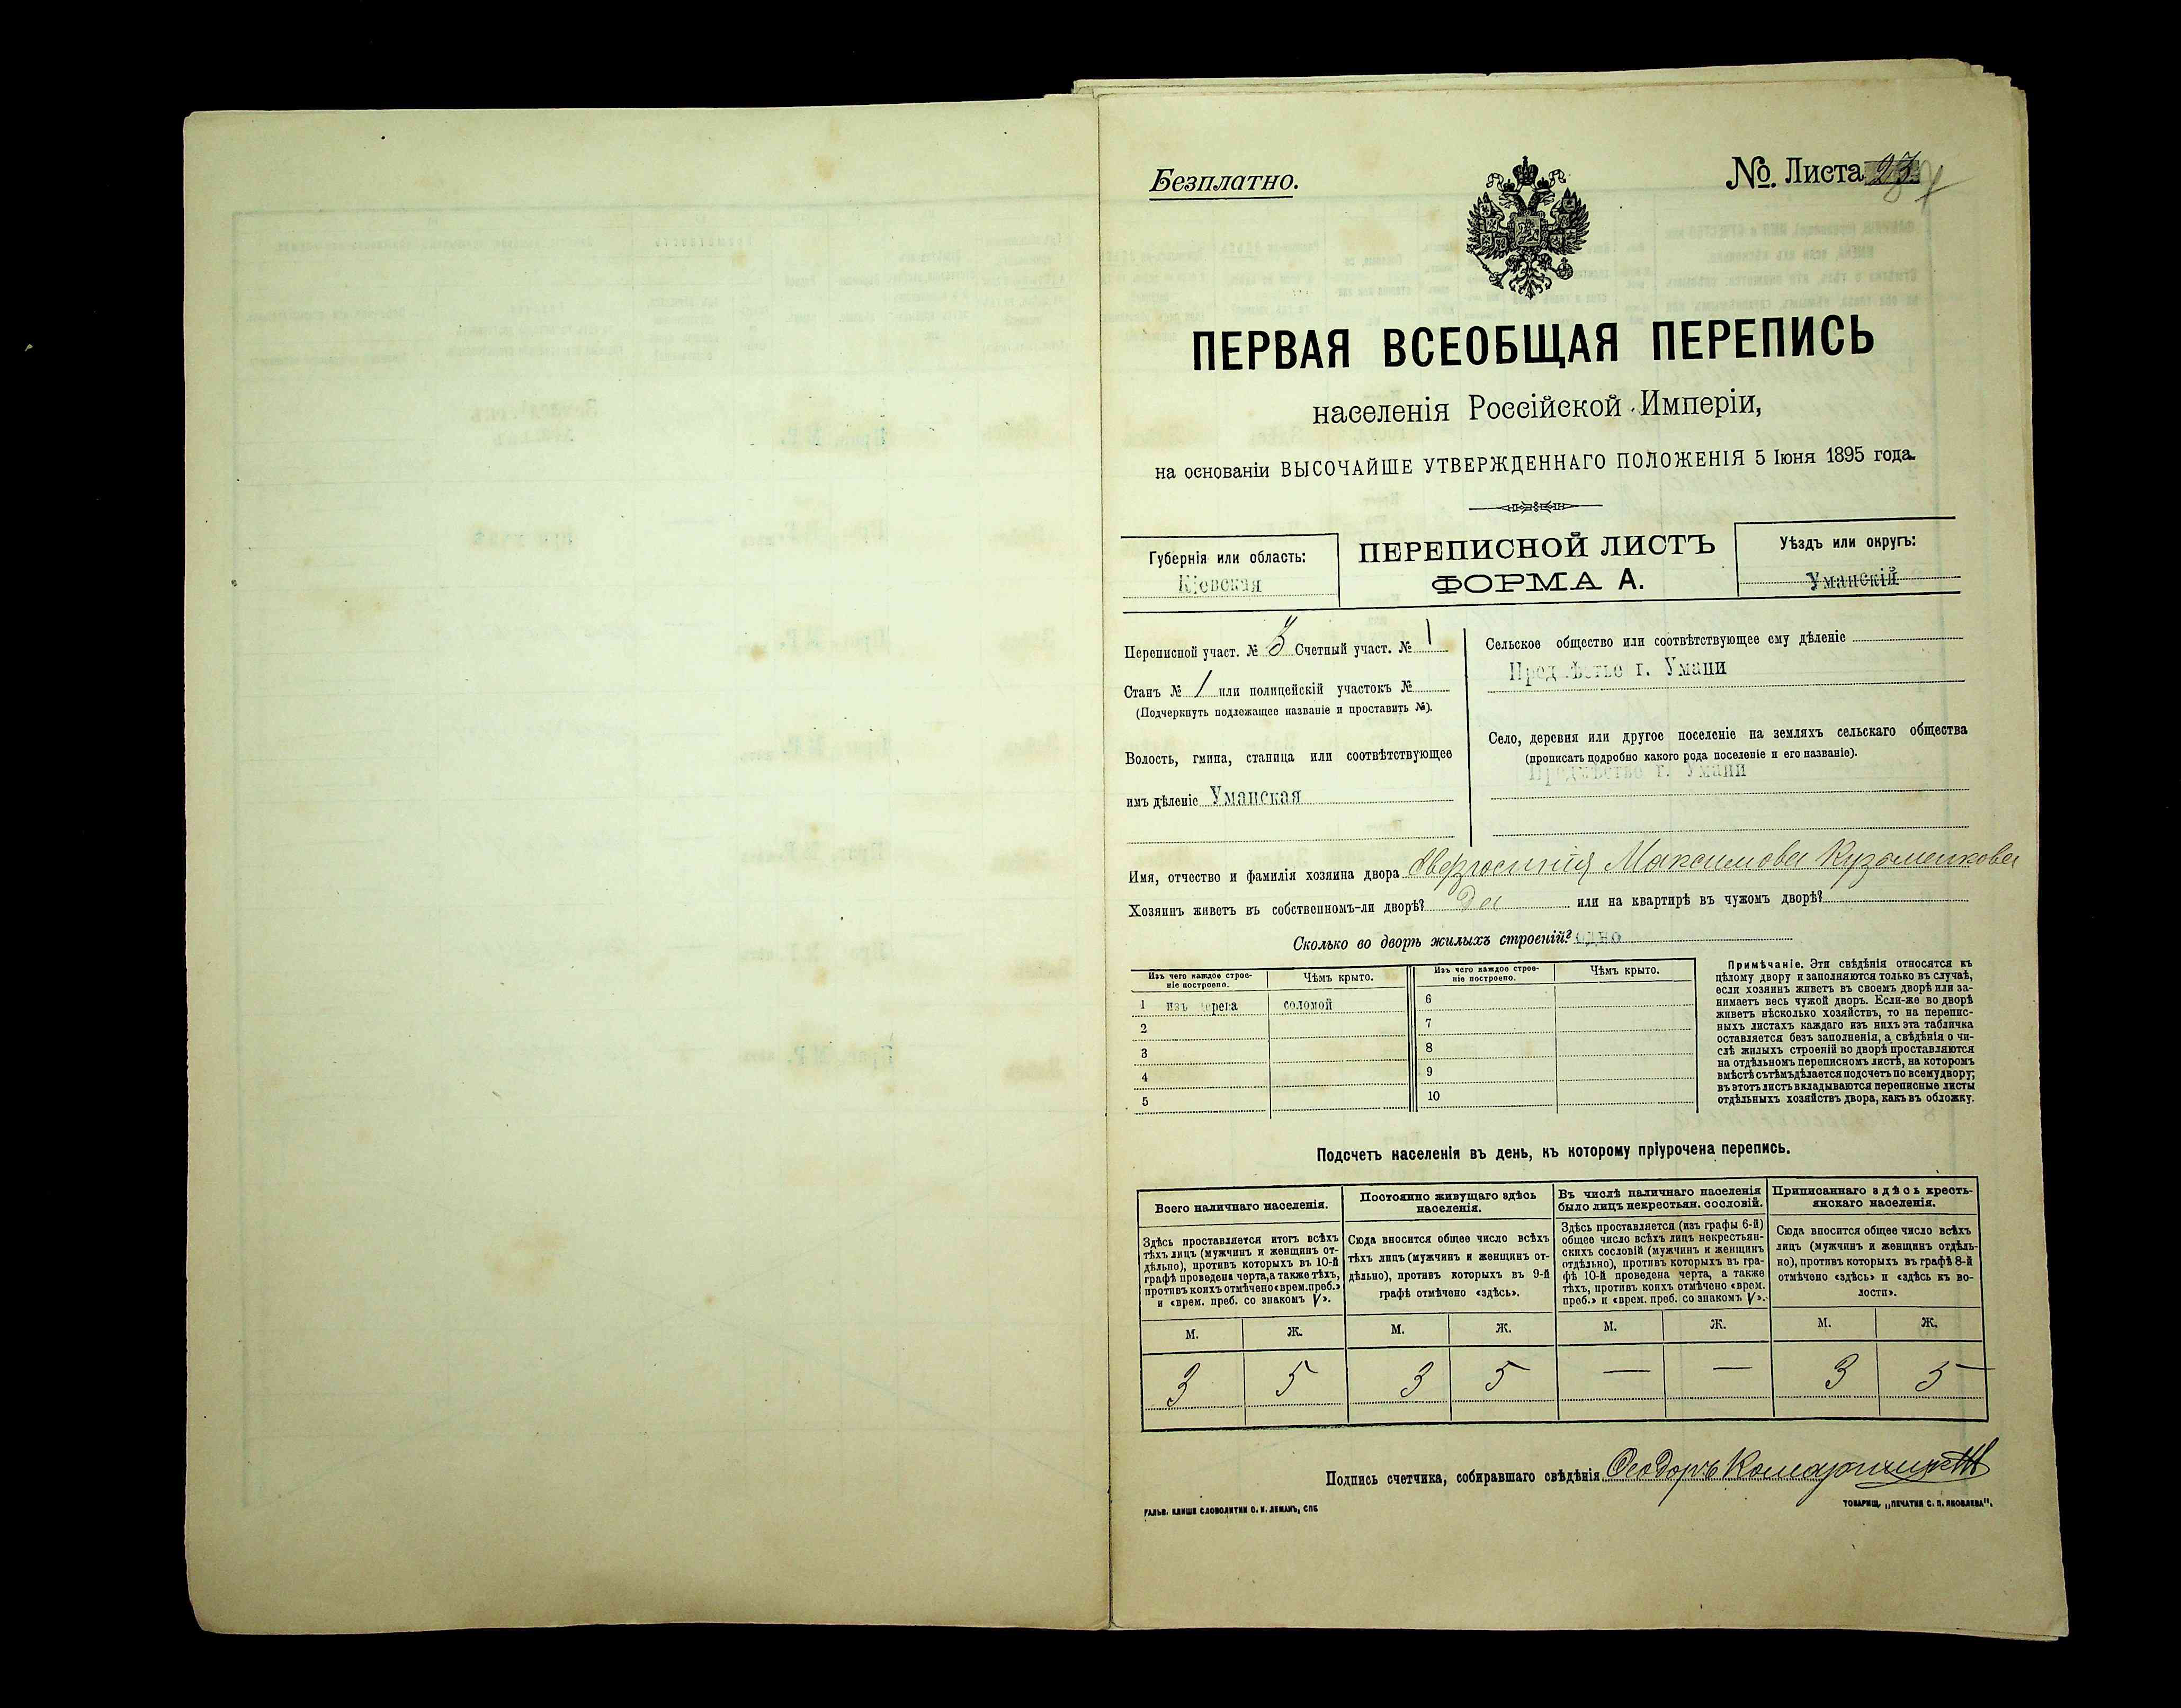 Безплатно.
№. Листа 23
ПЕРВАЯ ВСЕОБЩАЯ ПЕРЕПИСЬ
населенія Россійской Имперіи,
на основаніи ВЫСОЧАЙШЕ УТВЕРЖДЕННАГО ПОЛОЖЕНІЯ 5 Іюня 1895 года.
Губернія или область:
Кіевская
ПЕРЕПИСНОЙ ЛИСТЪ
ФОРМА А.
Уѣздъ или округъ:
Уманскій
Переписной участ. № 3 Счетный участ. № 1
Станъ № 1 или полицейскій участокъ №
(Подчеркнуть подлежащее названіе и проставить №).
Волость, гмина, станица или соотвѣтствующее
имъ дѣленіе Уманская
Сельское общество или соотвѣтствующее ему дѣленіе
Предмѣстье г. Умани
Село, деревня или другое поселеніе на земляхъ сельскаго общества
(прописать подробно какого рода поселеніе и его названіе).
Предмѣстье г. Умани
Имя, отчество и фамилія хозяина двора Максимова Кузьменкова
Хозяинъ живетъ въ собственномъ-ли дворѣ? Да или на квартирѣ въ чужомъ дворѣ?
Сколько во дворѣ жилыхъ строеній? одно
Изъ чего каждое строе-
ніе построено.
Чѣмъ крыто.
Изъ чего каждое строе-
ніе построено.
Чѣмъ крыто.
1 изъ дерева соломой
2
3
4
5
6
7
8
9
10
Примѣчаніе. Эти свѣдѣнія относятся къ
цѣлому двору и заполняются только въ случаѣ,
если хозяинъ живетъ въ своемъ дворѣ или за-
нимаетъ весь чужой дворъ. Если-же во дворѣ
живетъ нѣсколько хозяйствъ, то на перепис-
ныхъ листахъ каждаго изъ нихъ эта табличка
оставляется безъ заполненія, а свѣдѣнія о чи-
слѣ жилыхъ строеній во дворѣ проставляются
на отдѣльномъ переписномъ листѣ, на которомъ
вмѣстѣ съ тѣмъ дѣлается подсчетъ по всему двору;
въ этотъ листъ вкладываются переписные листы
отдѣльныхъ хозяйствъ двора, какъ въ обложку.
Подсчетъ населенія въ день, къ которому пріурочена перепись.
Всего наличнаго населенія.
Здѣсь проставляется итогъ всѣхъ
тѣхъ лицъ (мужчинъ и женщинъ от-
дѣльно), противъ которыхъ въ 10-й
графѣ проведена черта, а также тѣхъ,
противъ коихъ отмѣчено «врем. преб.»
и «врем. преб. со знакомъ V».
Постоянно живущаго здѣсь
населенія.
Сюда вносится общее число всѣхъ
тѣхъ лицъ (мужчинъ и женщинъ от-
дѣльно), противъ которыхъ въ 9-й
графѣ отмѣчено «здѣсь».
Въ числѣ наличнаго населенія
было лицъ некрестьян. сословій.
Здѣсь проставляется (изъ графы 6-й)
общее число всѣхъ лицъ некрестьян-
скихъ сословій (мужчинъ и женщинъ
отдѣльно), противъ которыхъ въ гра-
фѣ 10-й проведена черта, а также
тѣхъ, противъ коихъ отмѣчено «врем.
преб.» и «врем. преб. со знакомъ V».
Приписаннаго здѣсь кресть-
янскаго населенія.
Сюда вносится общее число всѣхъ
лицъ (мужчинъ и женщинъ отдѣль-
но), противъ которыхъ въ графѣ 8-й
отмѣчено «здѣсь» и «здѣсь къ во-
лости».
М. Ж. М. Ж. М. Ж. М. Ж.
3 5 3 5 — — 3 5
Подпись счетчика, собиравшаго свѣдѣнія Ѳеодоръ
ГАЛЬВ. КЛИШЕ СЛОВОЛИТНИ О. И. ЛЕМАНЪ, СПБ
ТОВАРИЩ. „ПЕЧАТНЯ С. П. ЯКОВЛЕВА".